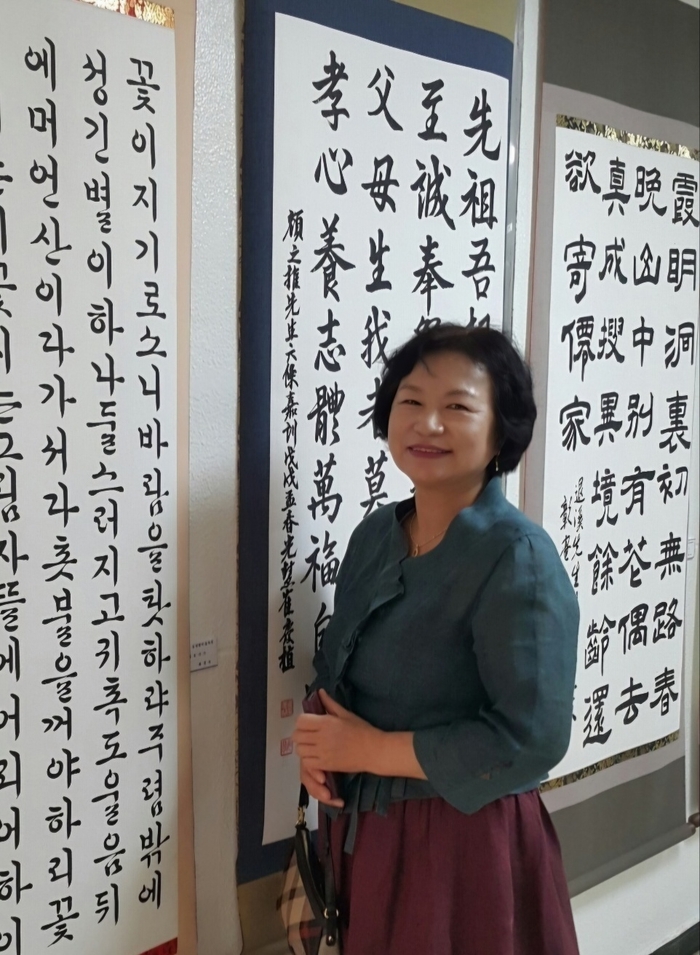 꽃이지기로소니바람을탓하랴주렴밖에
성긴별이하나둘스러지고귀촉도울음뒤
에머언산이다가서다촛불을꺼야하리꽃
꽃지는그림자뜰에어리어하이
先祖吾
至誠奉
父母生我者莫
孝心養志體萬福自
顔之推先生六條嘉訓戊戌孟春
霞明洞裏初無路春
晩山中別有花偶去
真成搜異境餘齡還
欲寄僊家
退溪先生